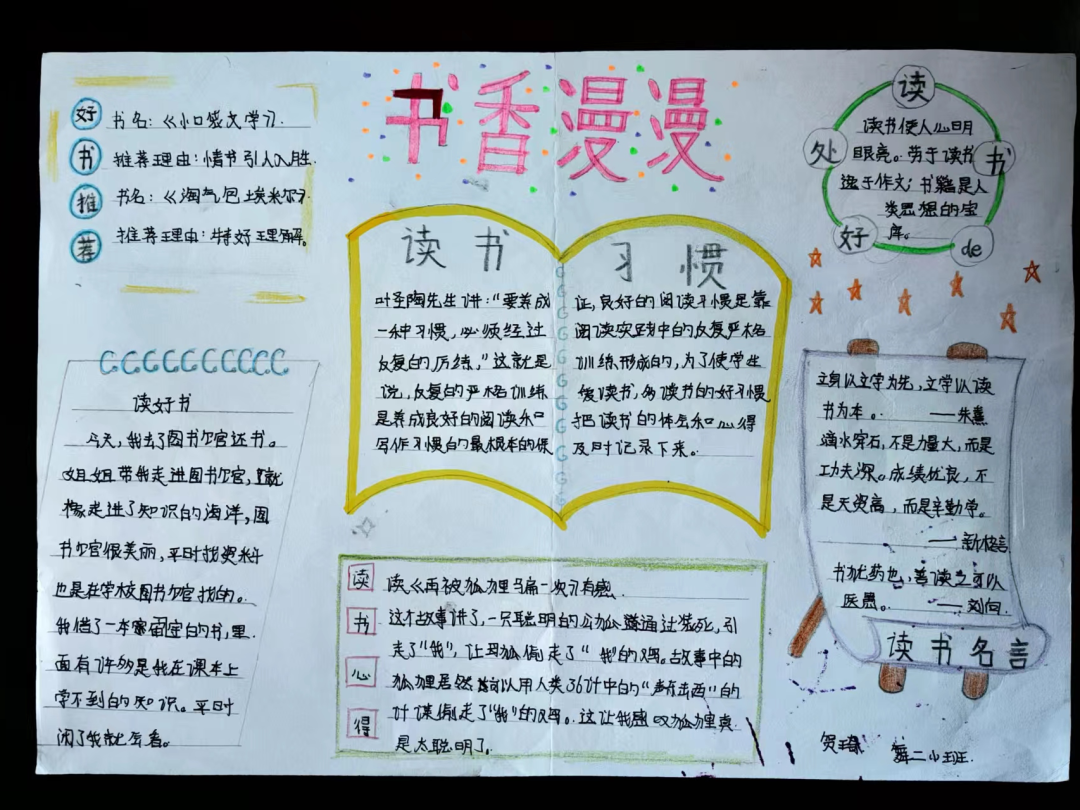 书香漫漫
好书推荐
书名：《小口袋文学》.
推荐理由：情节引人入胜.
书名：《淘气包埃米尔》.
推荐理由：特好理解。
读书好处de
读书使人心明
眼亮。劳于读书
逸于作文；书籍是人
类思想的宝
库。
读书 习惯
叶圣陶先生讲：“要养成
一种习惯，必须经过
反复的历练，”这就是
说，反复的严格训练
是养成良好的阅读和
写作习惯的最根本的保
证，良好的阅读习惯是靠
阅读实践中的反复严格
训练形成的，为了使学生
读书，读书的好习惯
把读书的体会和心得
及时记录下来。
读好书
今天，我去了图书馆还书。
姐姐带我走进图书馆，就
像走进了知识的海洋，图
书馆很美丽，平时找资料
也是在学校图书馆找的。
我借了一本的书，里
面有许多是我在课本上
学不到的知识。平时
闲了我就会看。
读书心得
读《再被狐狸骗一次》有感
这个故事讲了，一只聪明的公狐通过装死，引
走了“我”，让母狐偷走了“我”的鸡。故事中的
狐狸居然可以用人类36计中的“声东击西”的
计谋偷走了“我”的鸡。这让我感叹狐狸真
是太聪明了。
立身以立学为先，立学以读
书为本。 ——朱熹
滴水穿石，不是力量大，而是
功夫深。成绩优良，不
是天资高，而是辛勤学。
——新格言
书犹药也，善读之可以
医愚。 ——刘向
读书名言
贺 舞二小班.